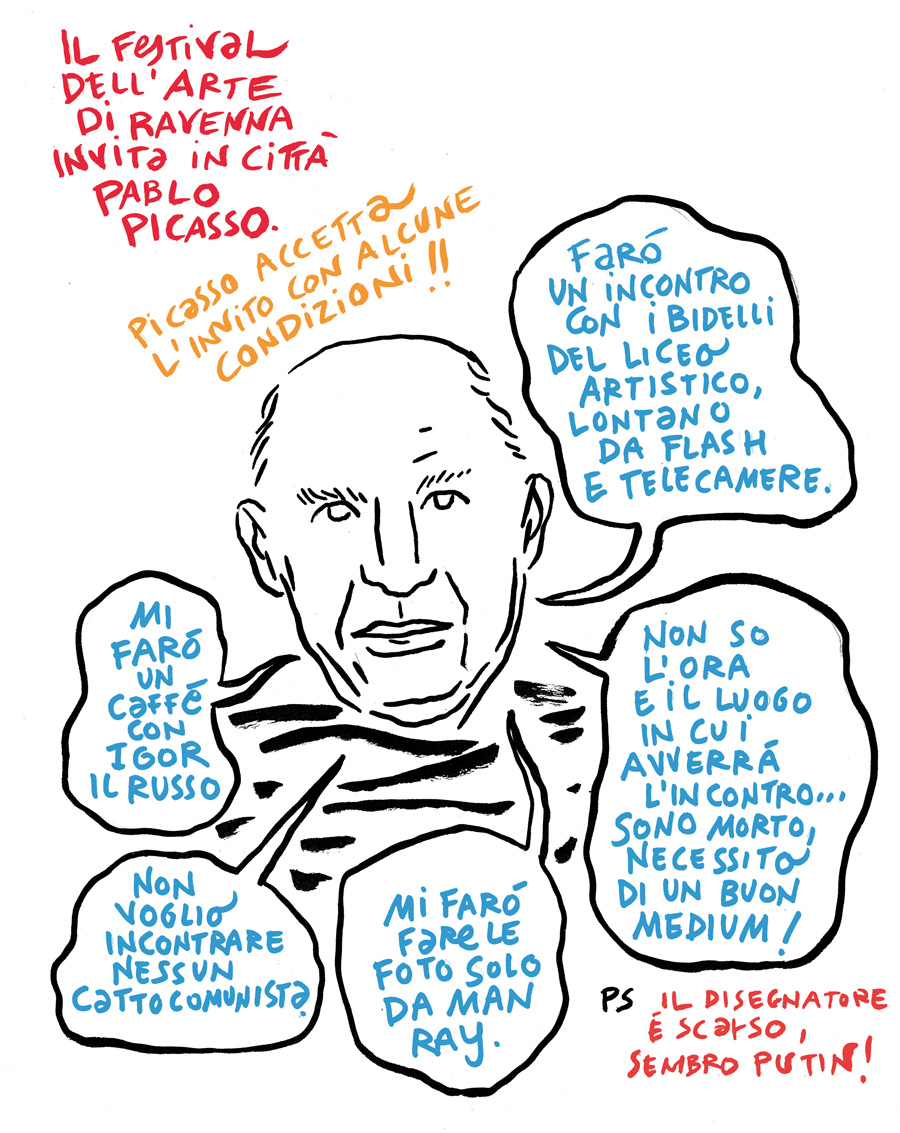 IL FESTIVAL
DELL'ARTE
DI RAVENNA
INVITA IN CITTÀ
PABLO
PICASSO.
PICASSO ACCETTA
L'INVITO CON ALCUNE
CONDIZIONI!!
FARÓ
UN INCONTRO
CON I BIDELLI
DEL LICEO
ARTISTICO,
LONTANO
DA FLASH
E TELECAMERE.
MI
FARÓ
UN
CAFFÉ
CON
IGOR
IL RUSSO
NON SO
L'ORA
E IL LUOGO
IN CUI
AVVERRÁ
L'INCONTRO...
SONO MORTO,
NECESSITO
DI UN BUON
MEDIUM!
NON
VOGLIO
INCONTRARE
NESSUN
CATTOCOMUNISTA.
MI FARÓ
FARE LE
FOTO SOLO
DA MAN
RAY.
PS IL DISEGNATORE
É SCARSO,
SEMBRO PUTIN!